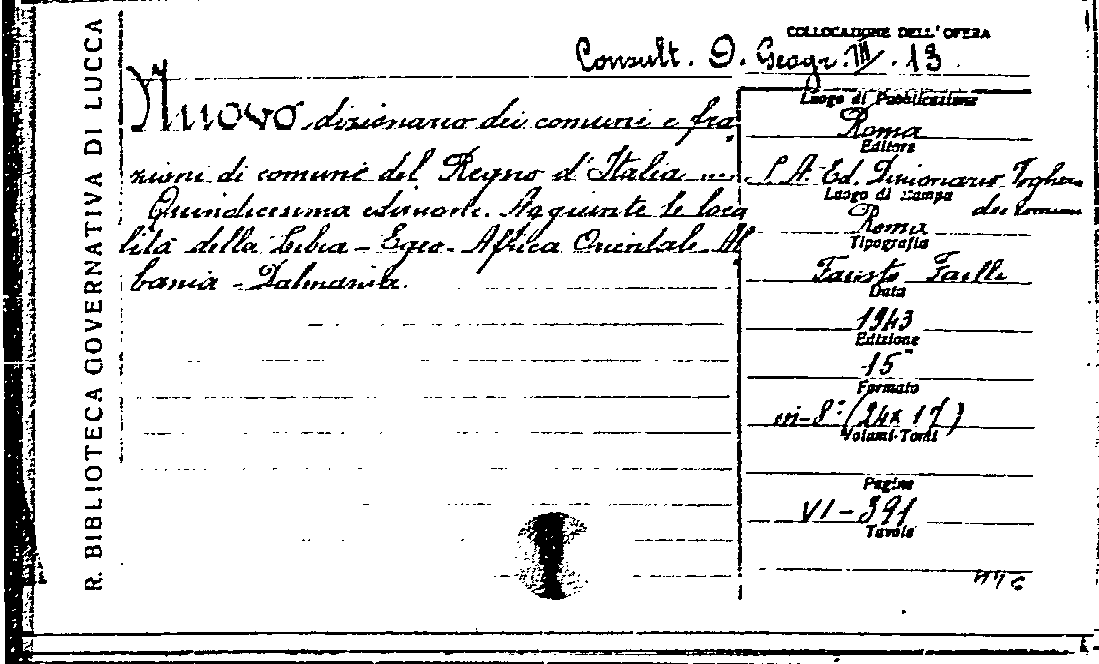 R. BIBLIOTECA GOVERNATIVA DI LUCCA
COLLOCAZIONE DELL'OPERA
Consult. D. Geogr. III. 13
Nuovo dizionario dei comuni e fra
zioni di comune del Regno d'Italia
Quindicesima edizione. Aggiunte le loca
lità della Libia - Egeo - Africa Orientale Al
bania - Dalmazia.
Luogo di Pubblicazione
Roma
Editore
S. A. Ed. Dizionario Voghera
dei Comuni
Luogo di stampa
Roma
Tipografia
Fausto Failli
Data
1943
Edizione
15
Formato
in-8° (24x17)
Volumi-Tomi
Pagine
VI-391
Tavole